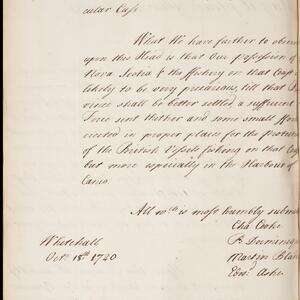 cular Case
What We have farther to observe
upon this Head is that Our possession of
Nova Scotia & the fishery on that Coast
likely to be very precarious, till that
vince shall be better settled, a sufficient
Force sent thither and some small
erected in proper places for the
of the British Vessels fishing on that
but more especially in the Harbour of
Canso.
All wch is most humbly
Cha Cooke
P. Doeminique
Martin
Edwd Ashe
Whitehall
Octr 18th 1720